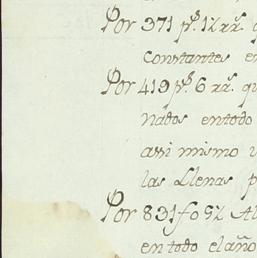 Por 371 ps. 12 rs. q
constantes en
Por 419 ps. 6 rs. qu
nados entodo
assi mismo
las Llenas p
Por 831
en todo el año